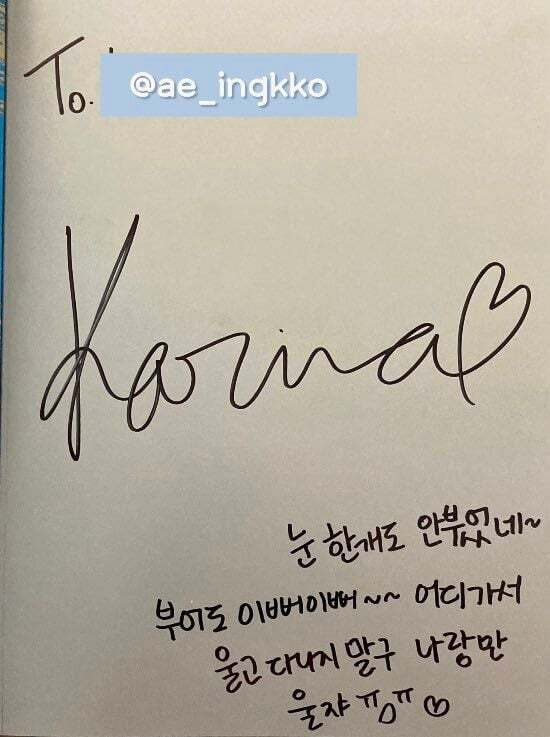 To.
@ae_ingkko
Karina♡
눈 한개도 안부었네~
부어도 이뻐이뻐~~ 어디가서
울고 다니지 말구 나랑만
울쟈 ㅠㅇㅠ ♡